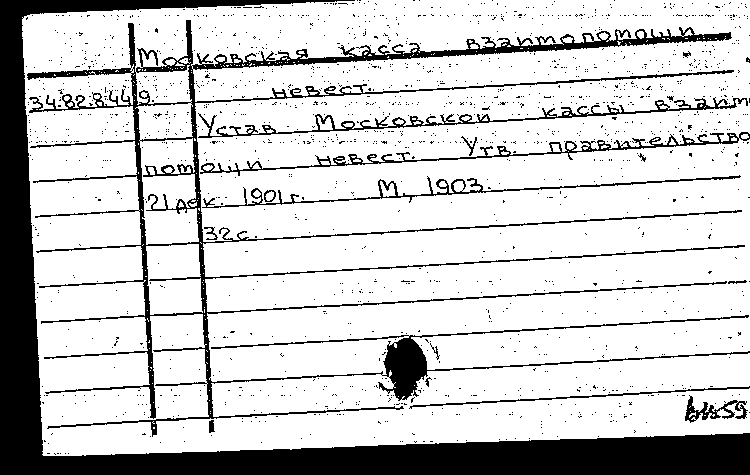 Московская касса взаимопомощи
34.82.8.449. невест.
Устав Московской кассы взаим
помощи невест. Утв. правительство
21 дек. 1901 г. М., 1903.
32 с.